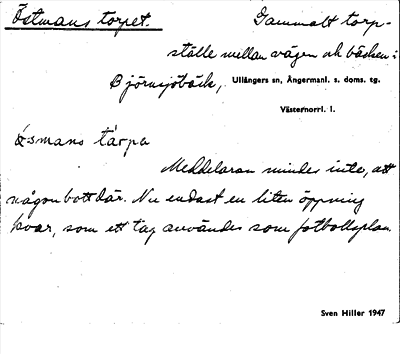 Östmans torpet. Gammalt torp-
ställe mellan vägen och bäcken i
Björnsjöbäck, Ullångers sn, Ångermanl. s. doms. tg.
Västernorrl. l.
ɷ̀smans tὰrpa
Meddelaren mindes inte, att
någon bott där. Nu endast en liten öppning
kvar, som ett tag användes som fotbollsplan.
Sven Hiller 1947